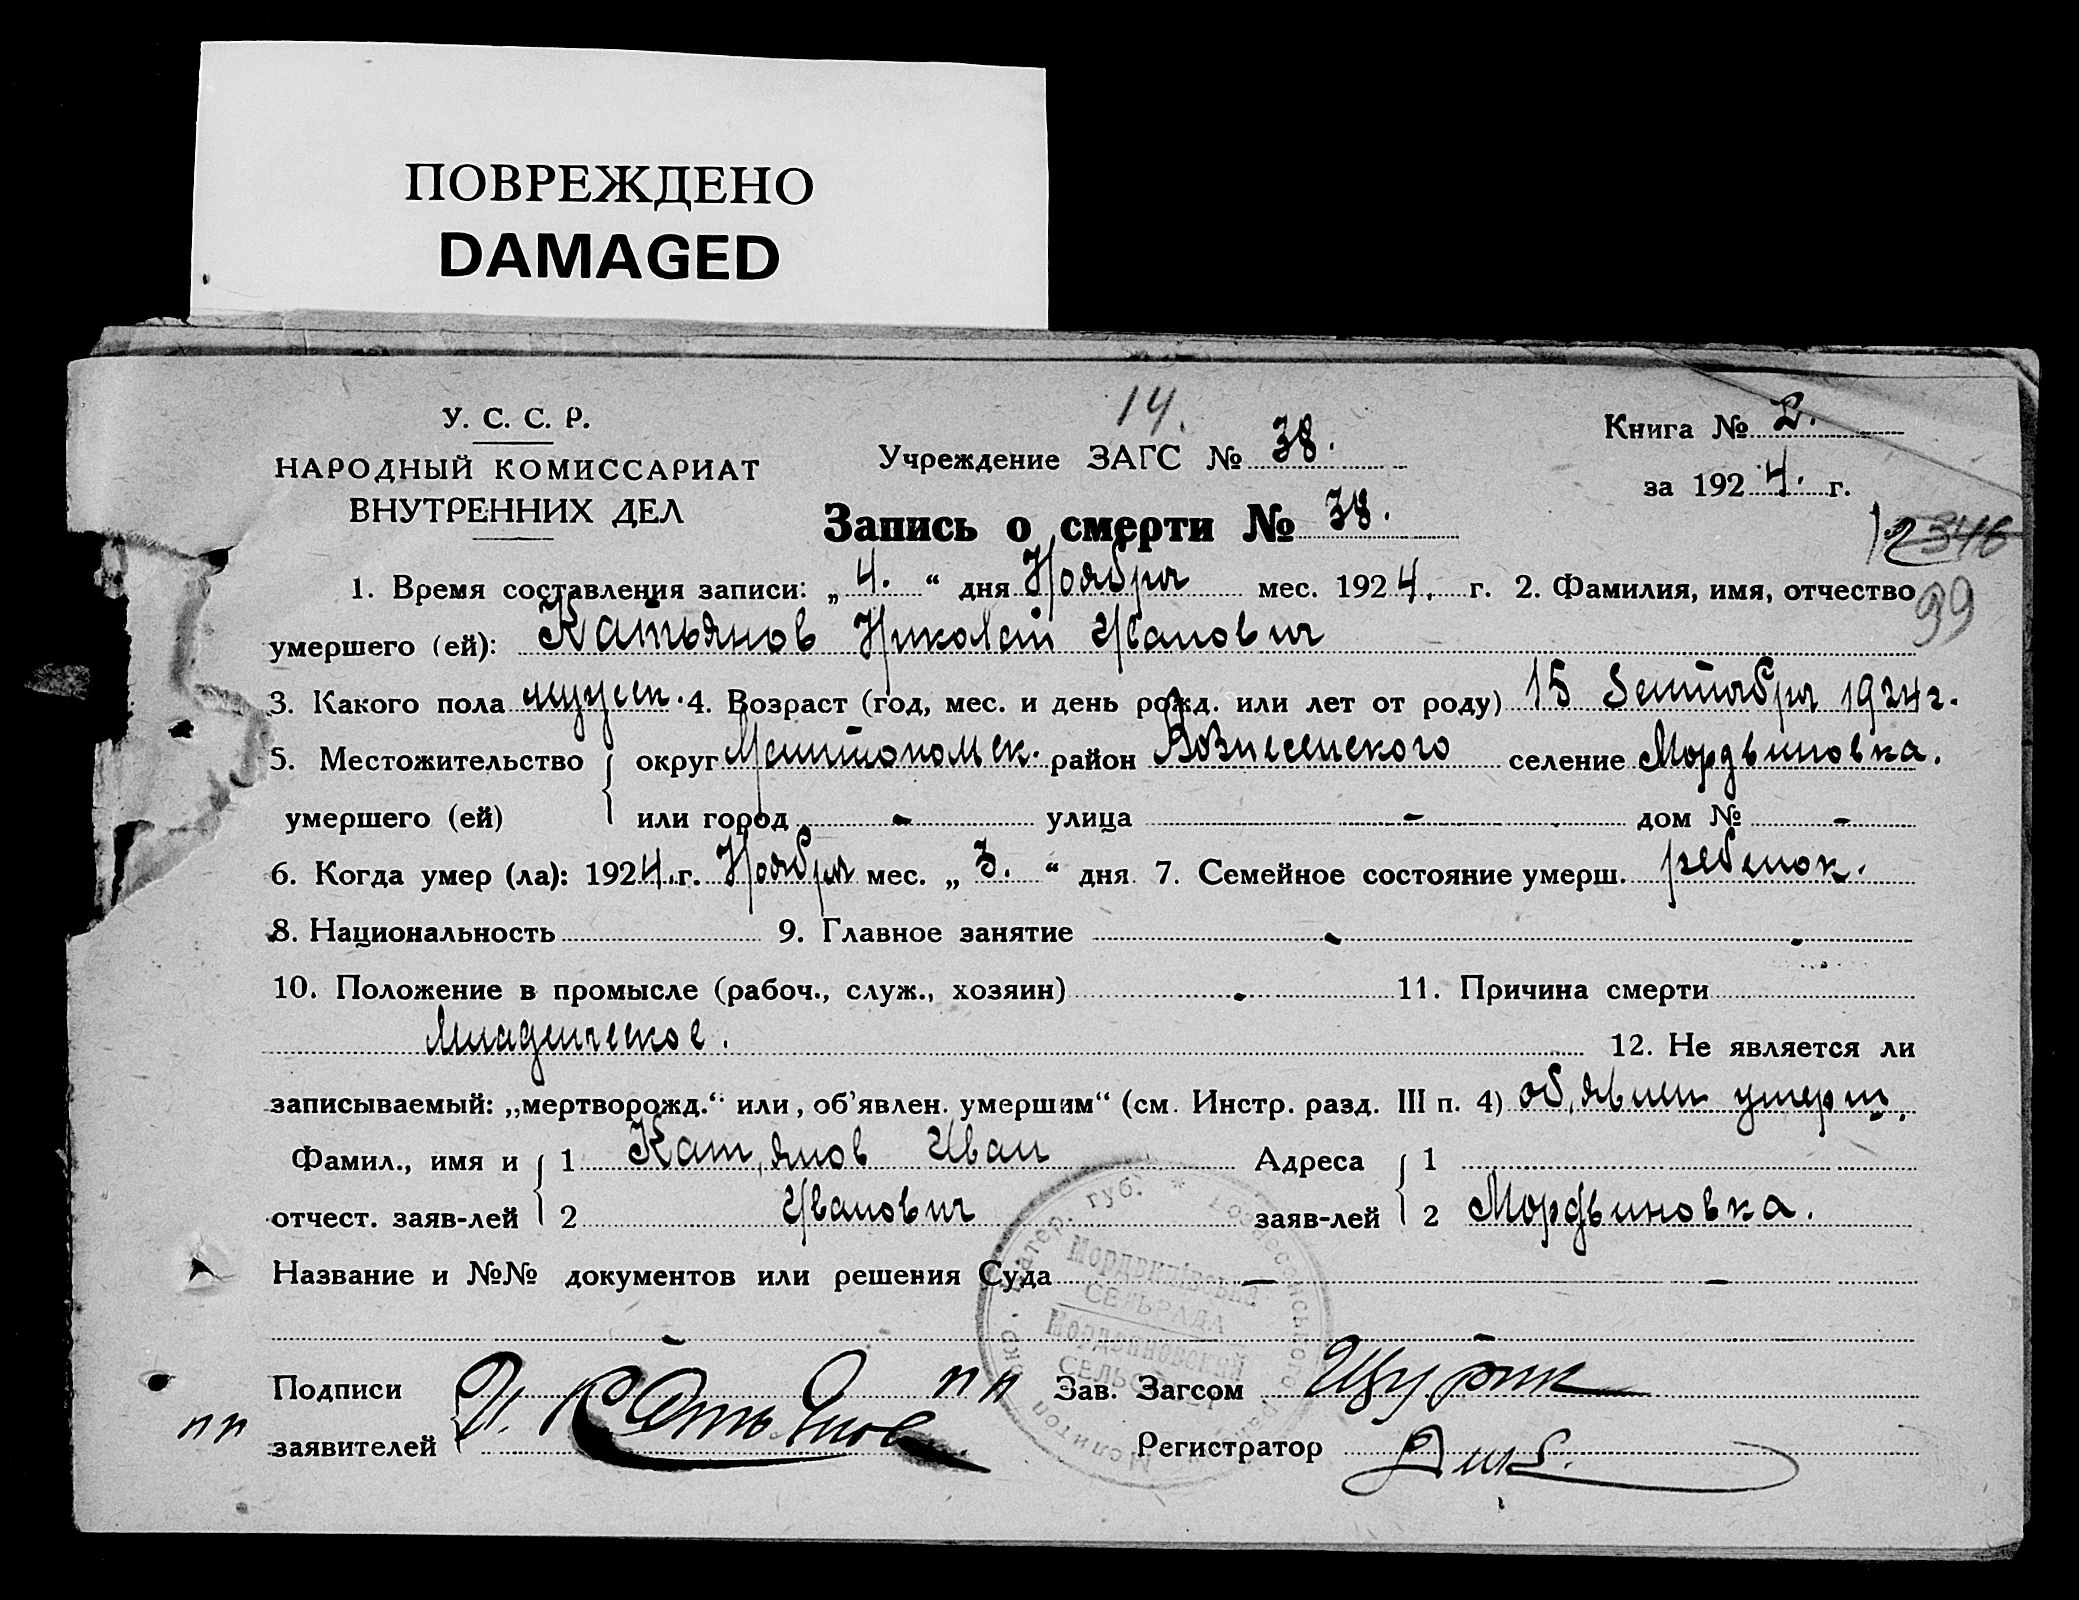 ПОВРЕЖДЕНО
DAMAGED
У. С. С. Р.
НАРОДНЫЙ КОМИССАРИАТ
ВНУТРЕННИХ ДЕЛ
14.
Учреждение ЗАГС № 38.
Книга № 2.
за 1924. г.
Запись о смерти № 38.
346
99
1. Время составления записи: „4.“ дня Ноября мес. 1924. г. 2. Фамилия, имя, отчество
умершего (ей): Катьянов Николай Иванович
3. Какого пола мужск. 4. Возраст (год, мес. и день рожд. или лет от роду) 15 Сентября 1924 г.
5. Местожительство округ район Вознесенского селение Мордвиновка.
умершего (ей) или город - улица - дом № -
6. Когда умер (ла): 1924. г. Ноября мес. „3.“ дня 7. Семейное состояние умерш. ребенок.
8. Национальность 9. Главное занятие
10. Положение в промысле (рабоч., служ., хозяин) 11. Причина смерти
Младенческое.
12. Не является ли
записываемый: „мертворожд.“ или, об'явлен. умершим“ (см. Инстр. разд. III п. 4) об,явлен умерш.
Фамил., имя и 1 Кат,янов Иван Адреса 1
отчест. заяв-лей 2 Иванович заяв-лей 2 Мордвиновка.
Название и №№ документов или решения Суда — —
Мордвинівська
СЕЛЬРАДА
Мордвиновский
СЕЛЬСОВЕТ
Подписи И. Катьянов Зав. Загсом
заявителей Регистратор